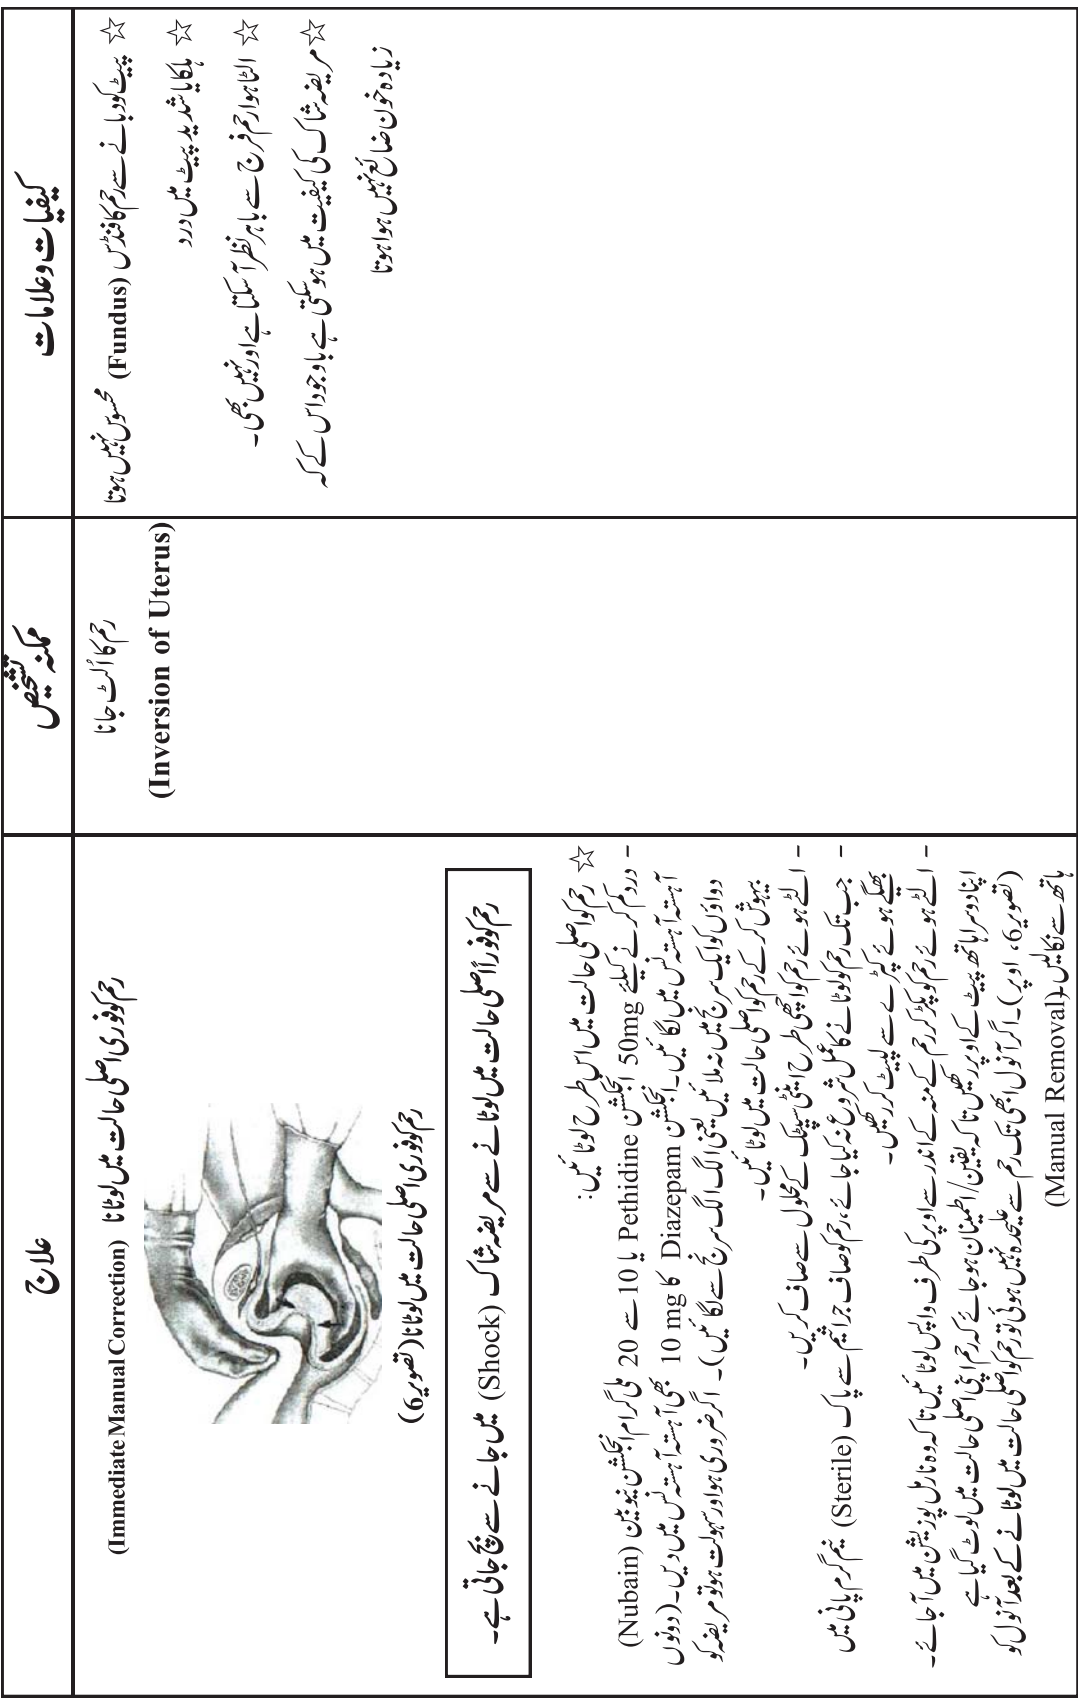 کیفیات و علامات
☆ پیٹ کو دبانے سے رحم کا فنڈس (Fundus) محسوس نہیں ہوتا
☆ ہلکا یا شدید پیٹ میں درد
☆ الٹا ہوا رحم فرج سے باہر نظر آ سکتا ہے اور نہیں بھی۔
☆ مریضہ شاک کی کیفیت میں ہو سکتی ہے باوجود اس کے کہ
زیادہ خون ضائع نہیں ہوا ہوتا
ممکنہ تشخیص
رحم کا اُلٹ جانا
(Inversion of Uterus)
علاج
رحم کو فوری اصلی حالت میں لوٹانا (Immediate Manual Correction)
رحم کو فوری اصلی حالت میں لوٹانا (تصویر 6)
رحم کو فوراً اصلی حالت میں لوٹانے سے مریضہ شاک (Shock) میں جانے سے بچ جاتی ہے۔
☆ رحم کو اصلی حالت میں اس طرح لوٹائیں:
- درد کم کرنے کیلئے 50mg انجکشن Pethidine یا 10 سے 20 ملی گرام انجکشن نیوبین (Nubain)
آہستہ آہستہ نس میں لگائیں۔ انجکشن Diazepam کا 10 mg بھی آہستہ آہستہ نس میں دیں۔ (دونوں
دواؤں کو ایک سرنج میں نہ ملائیں یعنی الگ الگ سرنج سے لگائیں)۔ اگر ضروری ہو اور سہولت ہو تو مریضہ کو
بیہوش کر کے رحم کو اصلی حالت میں لوٹائیں۔
- الٹے ہوئے رحم کو اچھی طرح اینٹی سیپٹک کے محلول سے صاف کریں۔
- جب تک رحم کو لوٹانے کا عمل شروع نہ کیا جائے، رحم کو صاف جراثیم سے پاک (Sterile) نیم گرم پانی میں
بھیگے ہوئے کپڑے سے لپیٹ کر رکھیں۔
- الٹے ہوئے رحم کو پکڑ کر رحم کے منہ کے اندر سے اوپر کی طرف واپس لوٹائیں تاکہ وہ نارمل پوزیشن میں آ جائے۔
اپنا دوسرا ہاتھ پیٹ کے اوپر رکھیں تاکہ یقین/اطمینان ہو جائے کہ رحم اپنی اصلی حالت میں لوٹ گیا ہے
(تصویر 6، اوپر)۔ اگر آنول ابھی تک رحم سے علیحدہ نہیں ہوئی تو رحم کو اصلی حالت میں لوٹانے کے بعد آنول کو
ہاتھ سے نکالیں۔ (Manual Removal)